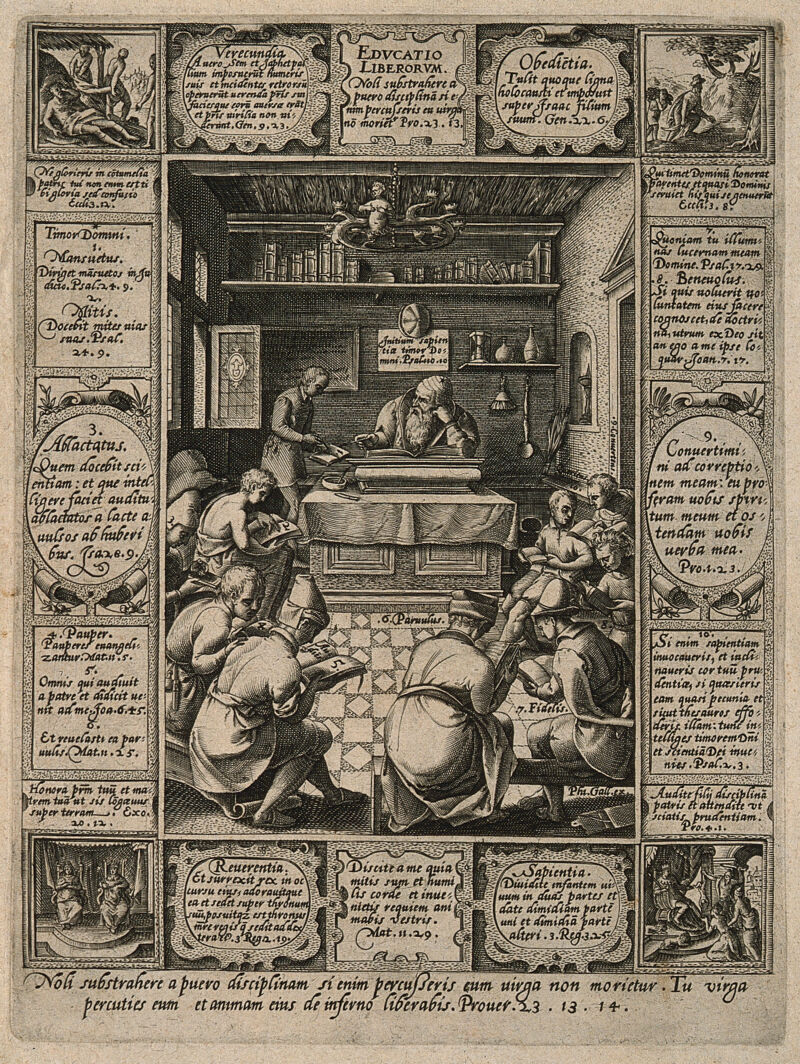 Verecundia
At uero Sem et Japhet pal
lium imposuerūt humeris
suis et incidentes retrorsū
operuerūt uerenda pris sui
faciesque eorū auersæ erāt
et pris uirilia non ui-
derunt. Gen. 9. 23.
EDVCATIO
LIBERORVM.
Noli substrahere a
puero disciplinā si e
nim percusseris eū uirga
nō moriet' Pro. 23. 13.
Obediētia.
Tulit quoque ligna
holocausti et imposuit
super Isaac filium
suum. Gen. 22. 6.
Ne glorieris in cōtumelia
patris tui non enim est ti
bi gloria sed confusio
Eccli. 3. 12.
Qui timet Dominū honorat
parentes et quasi Dominis
seruiet his qui se genuerūt
Eccli. 3. 8.
Timor Domini.
1.
Mansuetus.
Diriget māsuetos in iu
dicio. Psal. 24. 9.
2.
Mitis.
Docebit mites uias
suas. Psal.
24. 9.
3.
Ablactatus.
Quem docebit sci-
entiam: et que intel-
ligere faciet auditū
ablactatos a lacte a
uulsos ab huberi
bus. Isa 28. 9.
4. Pauper.
Pauperes euangeli-
zantur. Mat. 11. 5.
5.
Omnis qui audiuit
a patre et didicit ue-
nit ad me. Joa. 6. 45.
6
Et reuelasti ea par-
uulis. Mat. 11. 25.
Honora prm tuū et ma
trem tuā ut sis lōgæuus
super terram. Exo.
20. 12.
Initium sapien
tiæ timor Do-
mini. Psal. 110. 10
9. Conuersus.
6. Paruulus.
7. Fidelis.
8
5
Phi. Gall. ex.
7.
Quoniam tu illumi-
nās lucernam meam
Domine. Psal. 17. 29
8. Beneuolus.
Si quis uoluerit uo-
luntatem eius facere
cognoscet, de doctri-
na, utrum ex Deo sit
an ego a me ipse lo-
quar. Joan. 7. 17.
9.
Conuertimi-
ni ad correptio-
nem meam: eu pro
feram uobis spiri
tum meum et os-
tendam uobis
uerba mea.
Pro. 1. 23.
10.
Si enim sapientiam
inuocaueris, et incli
naueris cor tuū pru-
dentiæ, si quæsieris
eam quasi pecunia et
sicut thesauros effo-
deris illam: tunc in-
telliges timorem Dni
et scientiā Dei inue-
nies. Psal. 2. 3.
Audite filij disciplinā
patris et attendite vt
sciatis prudentiam.
Pro. 4. 1.
Reuerentia.
Et surrexit rex in oc
cursū eius, adorauitque
eā et sedet super thronum
suū, posuitqz est thronus
mre regis q sedit ad dex
terā eiꝰ. 3 Reg. 2. 19.
Discite a me quia
mitis sum et humi
lis corde et inue-
nietis requiem ani
mabis vestris.
Mat. 11. 29.
Sapientia.
Diuidite infantem ui-
uum in duas partes et
date dimidiam partē
uni et dimidiā partē
alteri. 3. Reg. 3. 25.
Noli substrahere a puero disciplinam si enim percusseris eum uirga non morietur. Tu virga
percuties eum et animam eius de inferno liberabis. Prouer. 23. 13. 14.